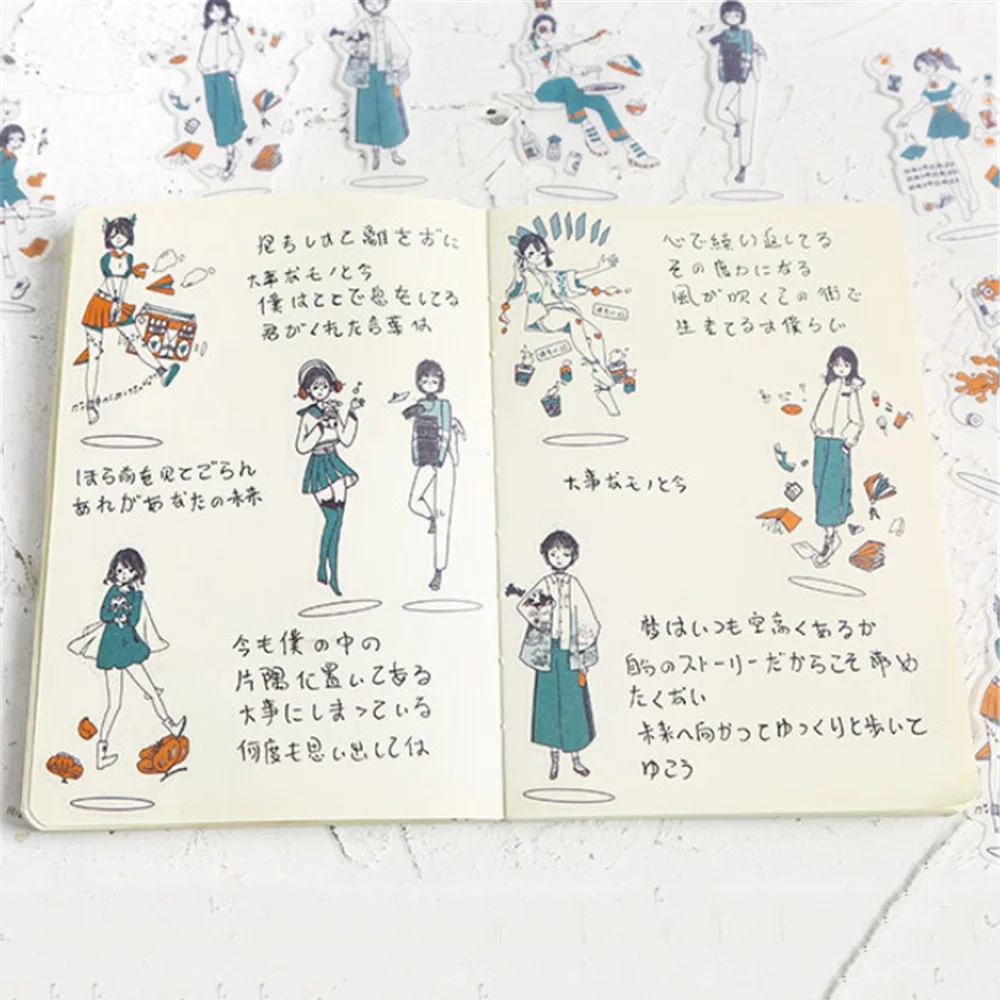 抱きしめて離さずに
大事なモノと今
僕はここで息をしてる
君がくれた言葉は
ほら前を見てごらん
あれがあなたの未来
今も僕の中の
片隅に置いてある
大事にしまっている
何度も思い出しては
心で繰り返してる
その度力になる
風が吹くこの街で
生きてるよ僕らし
大事なモノと今
夢はいつも空高くあるか
自分のストーリーだからこそ諦め
たくない
未来へ向かってゆっくりと歩いて
ゆこう